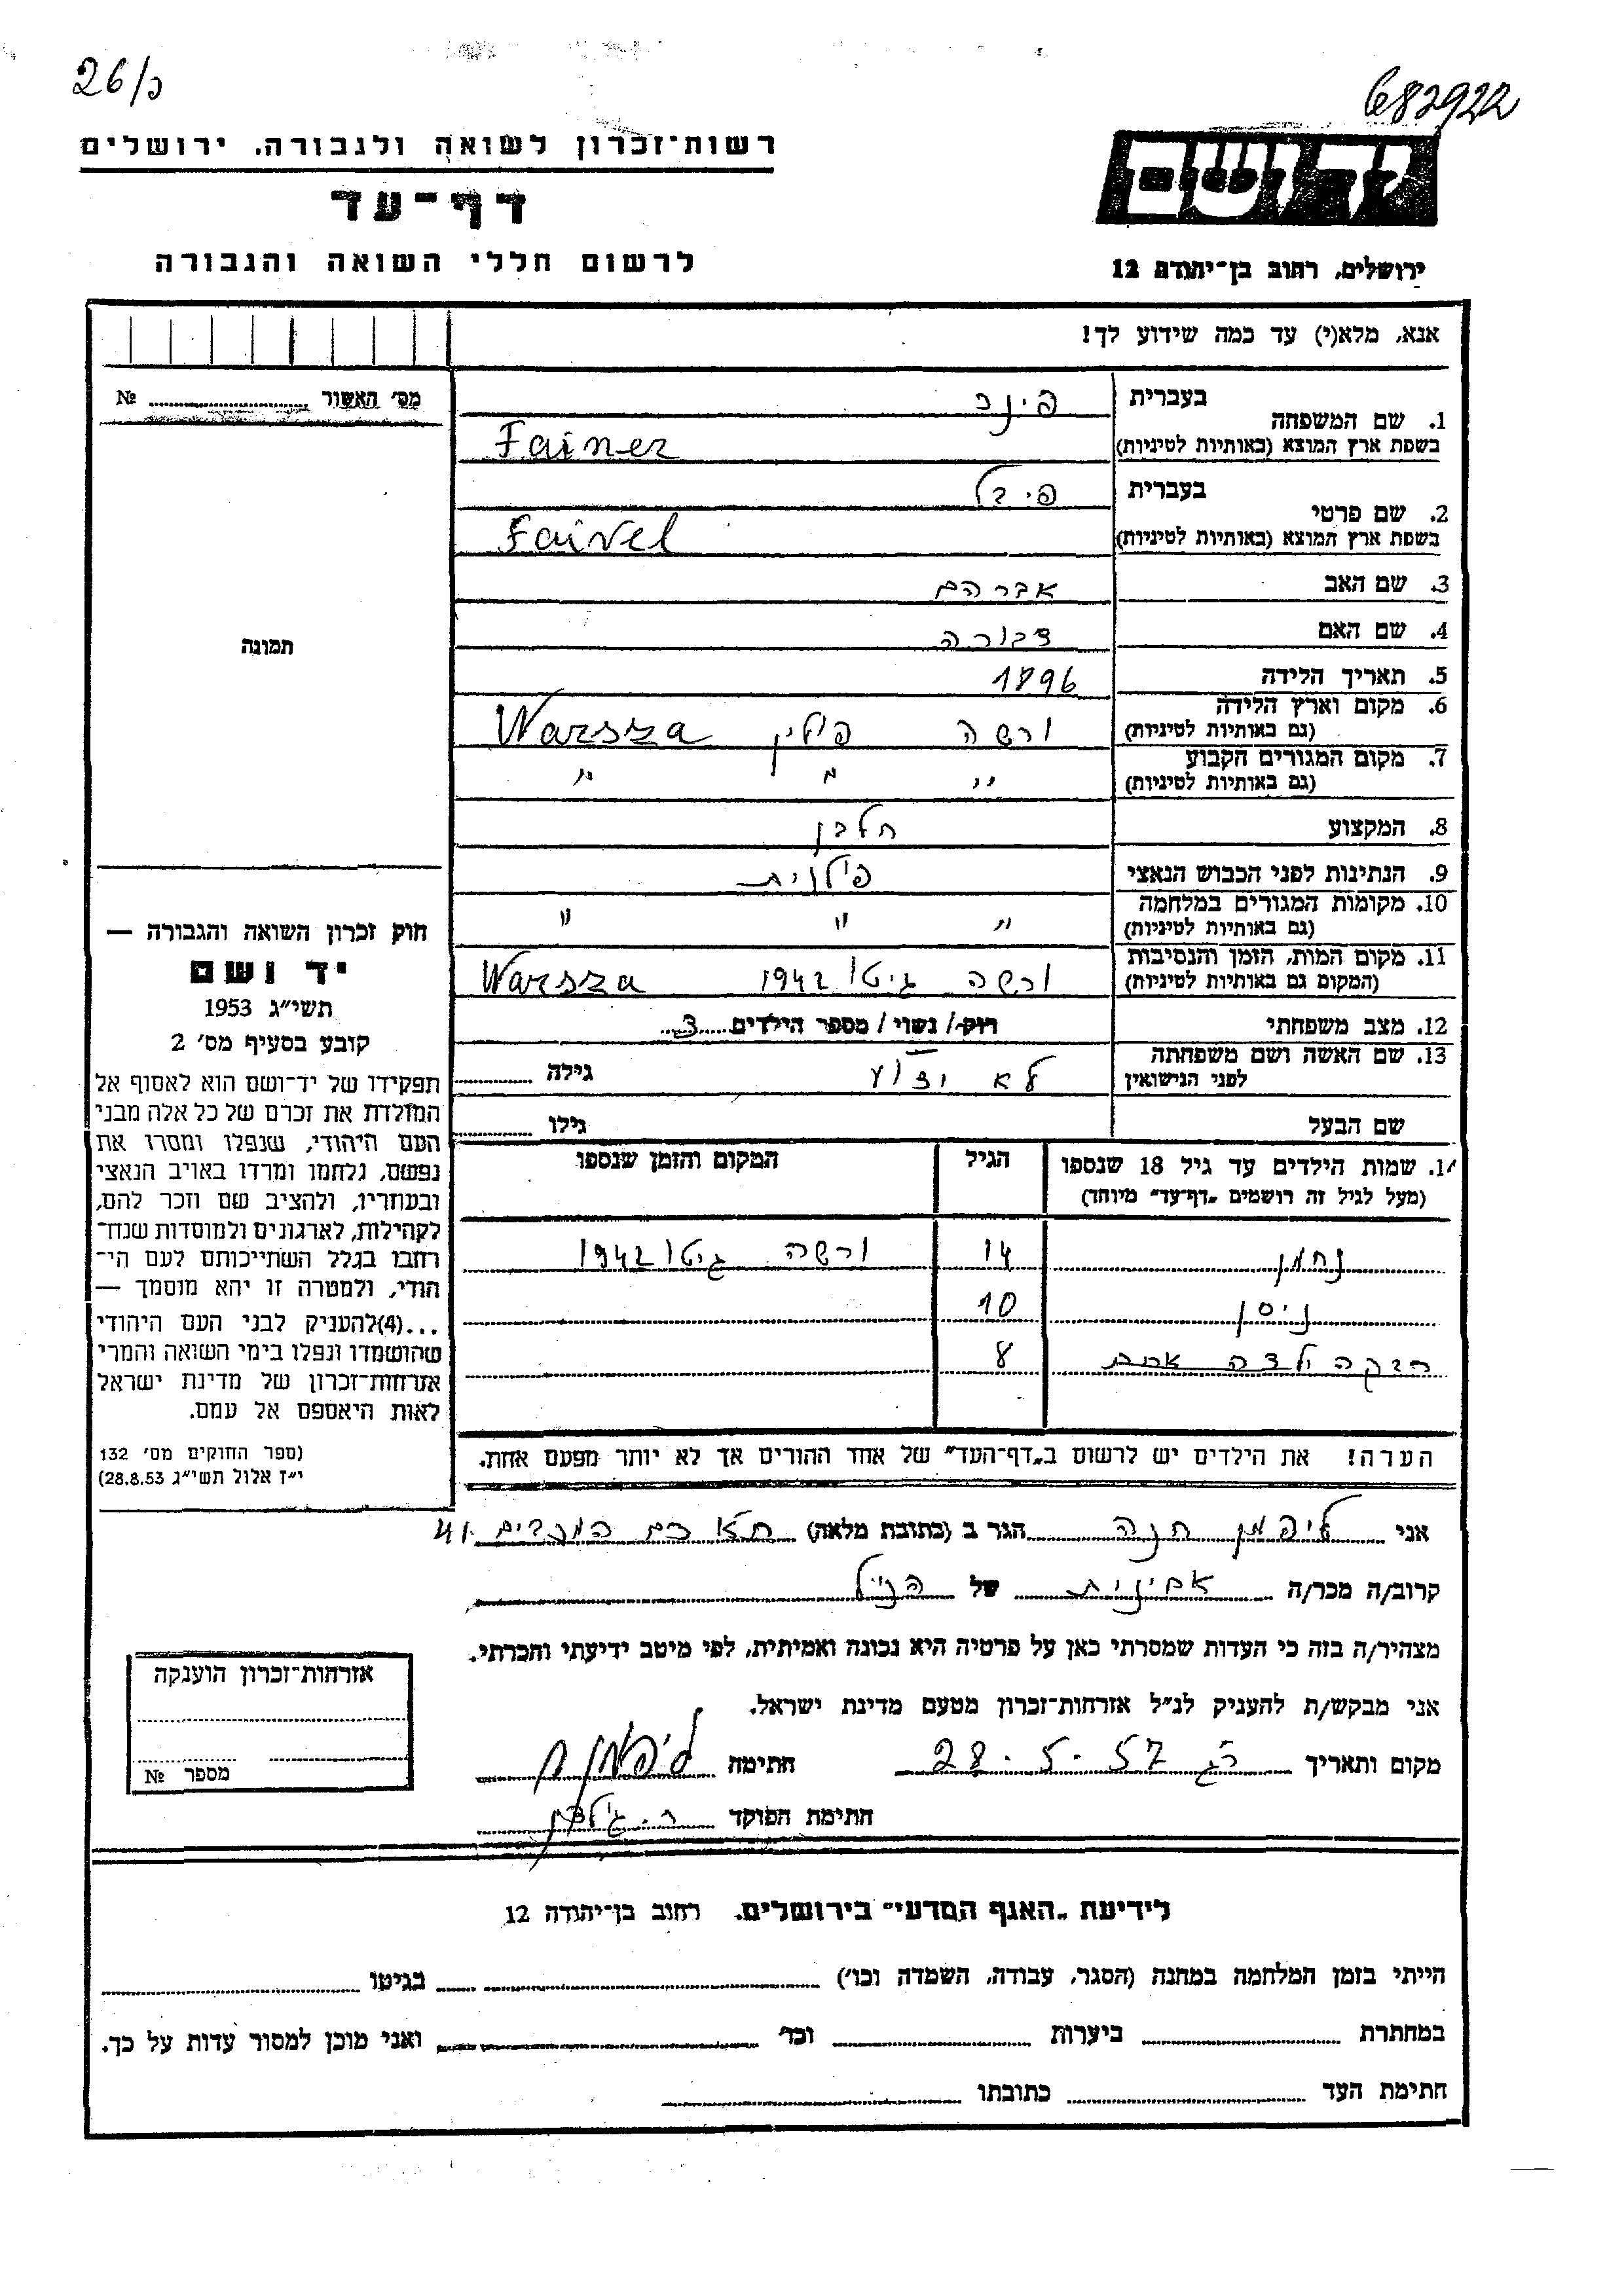 26/כ
682922
רשות־זכרון לשואה ולגבורה, ירושלים
דף־עד
לרשום חללי השואה והגבורה
יד ושם
ירושלים, רחוב בן־יהודה 12
אנא, מלא(י) עד כמה שידוע לך!
מס׳ האשור № 
תמונה
1. שם המשפחה בעברית פינר
בשפת ארץ המוצא (באותיות לטיניות) Fainer
2. שם פרטי בעברית פיבל
בשפת ארץ המוצא (באותיות לטיניות) Faivel
3. שם האב אברהם
4. שם האם דבורה
5. תאריך הלידה 1896
6. מקום וארץ הלידה (גם באותיות לטיניות) ורשה פולין Warsza
7. מקום המגורים הקבוע (גם באותיות לטיניות) " " "
8. המקצוע חלבן
9. הנתינות לפני הכבוש הנאצי פולנית
10. מקומות המגורים במלחמה (גם באותיות לטיניות) " " "
11. מקום המות, הזמן והנסיבות (המקום גם באותיות לטיניות) ורשה גיטו 1942 Warsza
12. מצב משפחתי רוק/ נשוי / מספר הילדים 3
13. שם האשה ושם משפחתה לפני הנישואין לא ידוע גילה
שם הבעל גילו
1. שמות הילדים עד גיל 18 שנספו הגיל המקום והזמן שנספו
(מעל לגיל זה רושמים „דף־עד" מיוחד)
נחמן 14 ורשה גיטו 1942
ניסן 10
רבקה ילדה אחת 8
הערה! את הילדים יש לרשום ב„דף־העד" של אחד ההורים אך לא יותר מפעם אחת.
חוק זכרון השואה והגבורה —
יד ושם
תשי״ג 1953
קובע בסעיף מס׳ 2
תפקידו של יד־ושם הוא לאסוף אל
המולדת את זכרם של כל אלה מבני
העם היהודי, שנפלו ומסרו את
נפשם, נלחמו ומרדו באויב הנאצי
ובעוזריו, ולהציב שם וזכר להם,
לקהילות, לארגונים ולמוסדות שנח־
רבו בגלל השתייכותם לעם הי־
הודי, ולמטרה זו יהא מוסמך —
...(4)להעניק לבני העם היהודי
שהושמדו ונפלו בימי השואה והמרי
אזרחות־זכרון של מדינת ישראל
לאות היאספם אל עמם.
(ספר החוקים מס׳ 132
י״ז אלול תשי״ג 28.8.53)
אני ליפמן חנה הגר ב (כתובת מלאה) ת"א כרם 41
קרוב/ה מכר/ה אחינית של הנ"ל
מצהיר/ה בזה כי העדות שמסרתי כאן על פרטיה היא נכונה ואמיתית, לפי מיטב ידיעתי והכרתי.
אני מבקש/ת להעניק לנ״ל אזרחות־זכרון מטעם מדינת ישראל.
מקום ותאריך רג 28.5.57 חתימה ליפמן ח
חתימת הפוקד
אזרחות־זכרון הוענקה
מספר №
לידיעת „האגף המדעי" בירושלים. רחוב בן־יהודה 12
הייתי בזמן המלחמה במחנה (הסגר, עבודה, השמדה וכו׳) בגיטו
במחתרת ביערות וכו׳ ואני מוכן למסור עדות על כך.
חתימת העד כתובתו